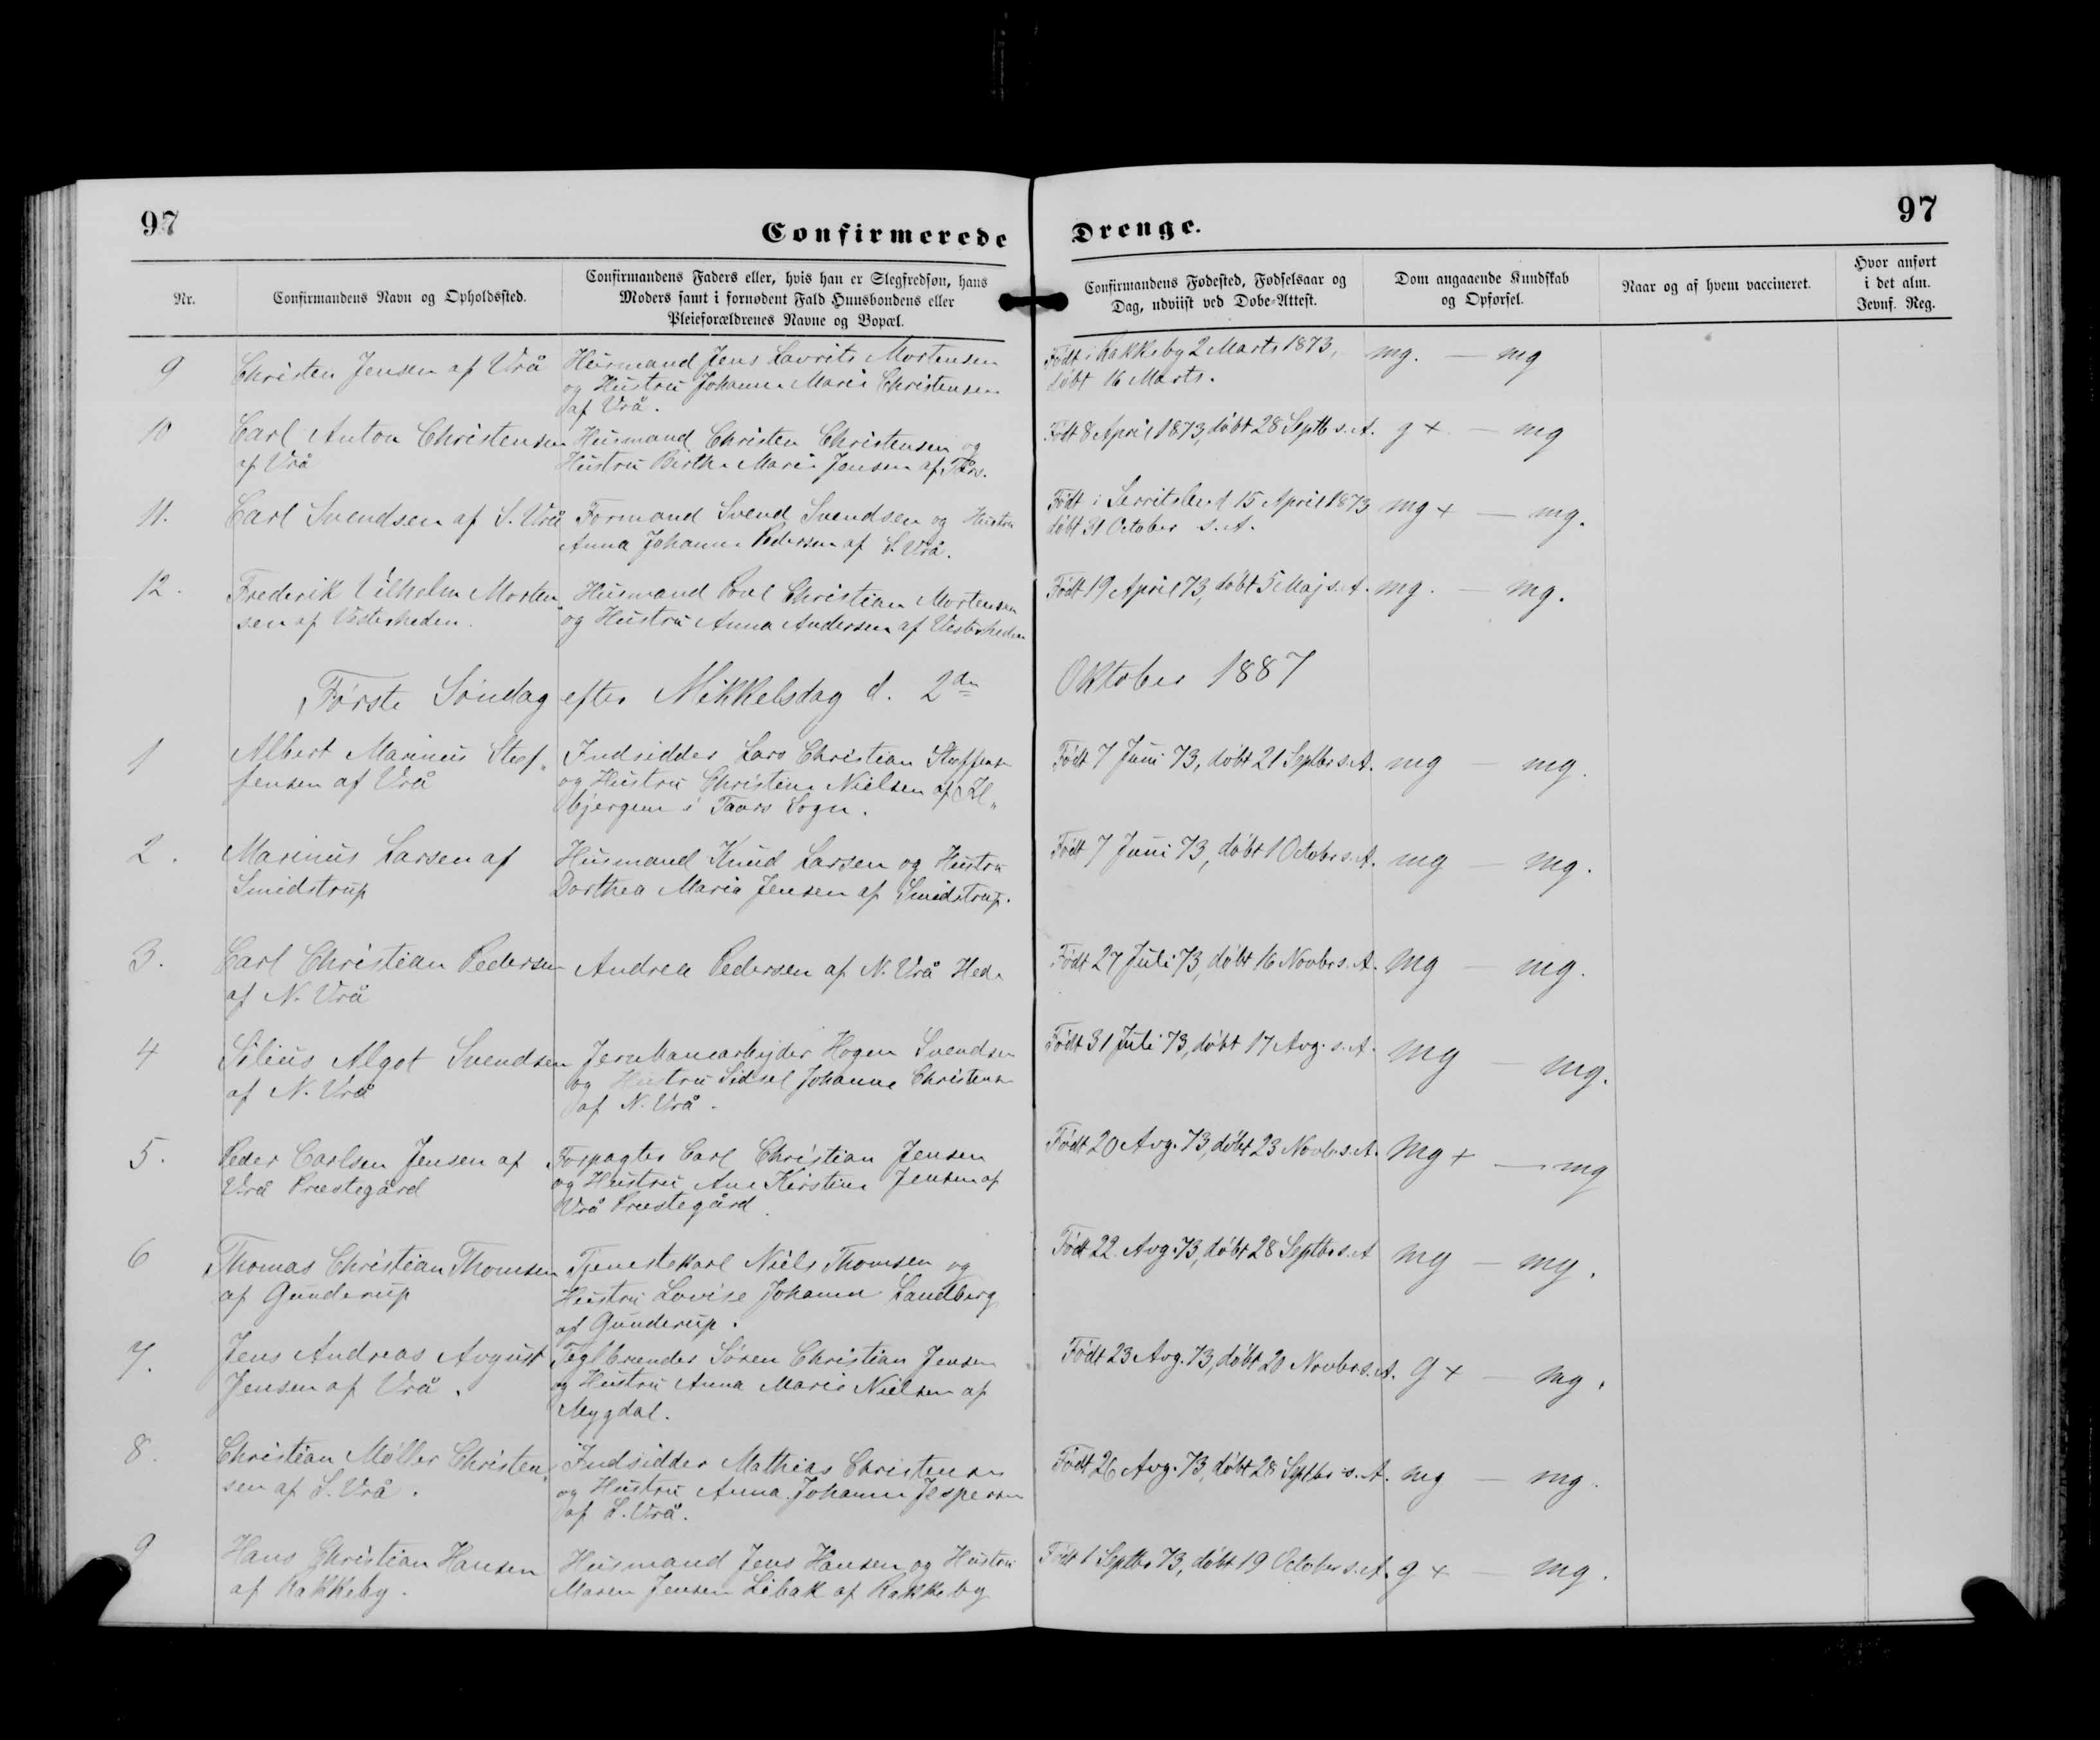 97
Confirmerede Drenge.
97
Nr.
Confirmandens Navn og Opholdssted.
Confirmandens Faders eller, hvis han er Slegfredsøn, hans
Moders samt i fornødent Fald Huusbondens eller
Pleieforældrenes Navne og Bopæl.
Confirmandens Fødested, Fødselsaar og
Dag, udviist ved Døbe-Attest.
Dom angaaende Kundskab
og Opførsel.
Naar og af hvem vaccineret.
Hvor anført
i det alm.
Jevnf. Reg.
9
Christen Jensen af Vrå
Husmand Jens Lavrits Mortensen
og Hustru Johanne Marie Christensen
af Vrå.
Født i Rakkeby 2 Marts 1873,
døbt 16 Marts.
mg. — mg
10
Carl Anton Christensen
af Vrå
Husmand Christen Christensen og
Hustru Birthe Marie Jensen af Tårs.
Født 8 April 1873, døbt 28 Septb s. A.
g + — mg
11.
Carl Svendsen af S. Vrå
Formand Svend Svendsen og Hustru
Anna Johanne Pedersen af S. Vrå.
Født i Serritslev d 15 April 1873
døbt 31 October s. A.
mg + — mg.
12.
Frederik Vilhelm Morten
sen af Vesterheden.
Husmand Povl Christian Mortensen
og Hustru Anna Andersen af Vesterheden
Født 19 April 73, døbt 5 Maj s. A.
mg. — mg.
Første Søndag efter Mikkelsdag d. 2den Oktober 1887
1
Albert Marinus Stef„
fensen af Vrå
Indsidder Lars Christian Steffensen
og Hustru Christine Nielsen af Kl„
bjergene i Taars Sogn.
Født 7 Juni 73, døbt 21 Septbr s. A.
mg — mg.
2.
Marinus Larsen af
Smidstrup
Husmand Knud Larsen og Hustru
Dorthea Maria Jensen af Smidstrup.
Født 7 Juni 73, døbt 1 Octobr s. A.
mg — mg.
3.
Carl Christian Pedersen
af N. Vrå
Andrea Pedersen af N. Vrå Hede
Født 27 Juli 73, døbt 16 Novbr s. A.
mg — mg.
4
Silius Algot Svendsen
af N. Vrå
Jernbanearbejder Hogen Svendsen
og Hustru Sidsel Johanne Christensen
af N. Vrå.
Født 31 Juli 73, døbt 17 Avg. s. A.
mg — mg.
5.
Peder Carlsen Jensen af
Vrå Præstegård
Forpagter Carl Christian Jensen
og Hustru Ane Kirstine Jensen af
Vrå Præstegård.
Født 20 Avg. 73, døbt 23 Novbr s. A.
mg + — mg
6
Thomas Christian Thomsen
af Gunderup
Tjenestekarl Niels Thomsen og
Hustru Lovise Johanne Landberg
af Gunderup.
Født 22 Avg. 73, døbt 28 Septbr s. A
mg — mg.
7.
Jens Andreas Avgust
Jensen af Vrå.
Teglbrænder Søren Christian Jensen
og Hustru Anna Marie Nielsen af
Mygdal.
Født 23 Avg. 73, døbt 20 Novbr s. A.
g + — mg.
8.
Christian Møller Christen„
sen af S. Vrå.
Indsidder Mathias Christensen
og Hustru Anna Johanne Jespersen
af S. Vrå.
Født 26 Avg. 73, døbt 28 Septbr s. A.
mg — mg.
9
Hans Christian Hansen
af Rakkeby.
Husmand Jens Hansen og Hustru
Maren Jensen Libak af Rakkeby
Født 1 Septbr 73, døbt 19 October s. A.
g + — mg.